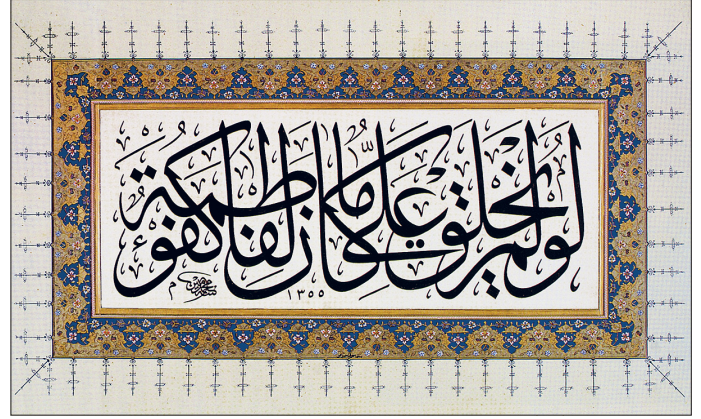 لو لم يخلق علي ما كان لفاطمة كفوء
١٣٥٥